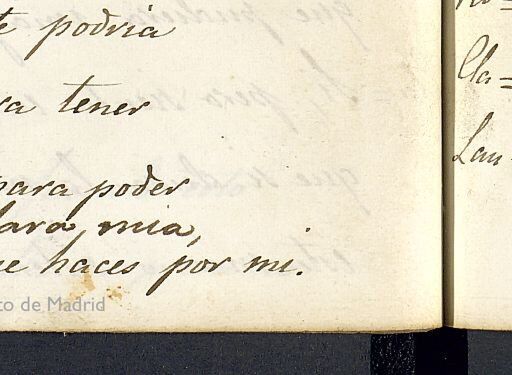 te podria
ra tener
para poder
lara mia,
ue haces por mi.
to de Madrid
Cla=
Lau